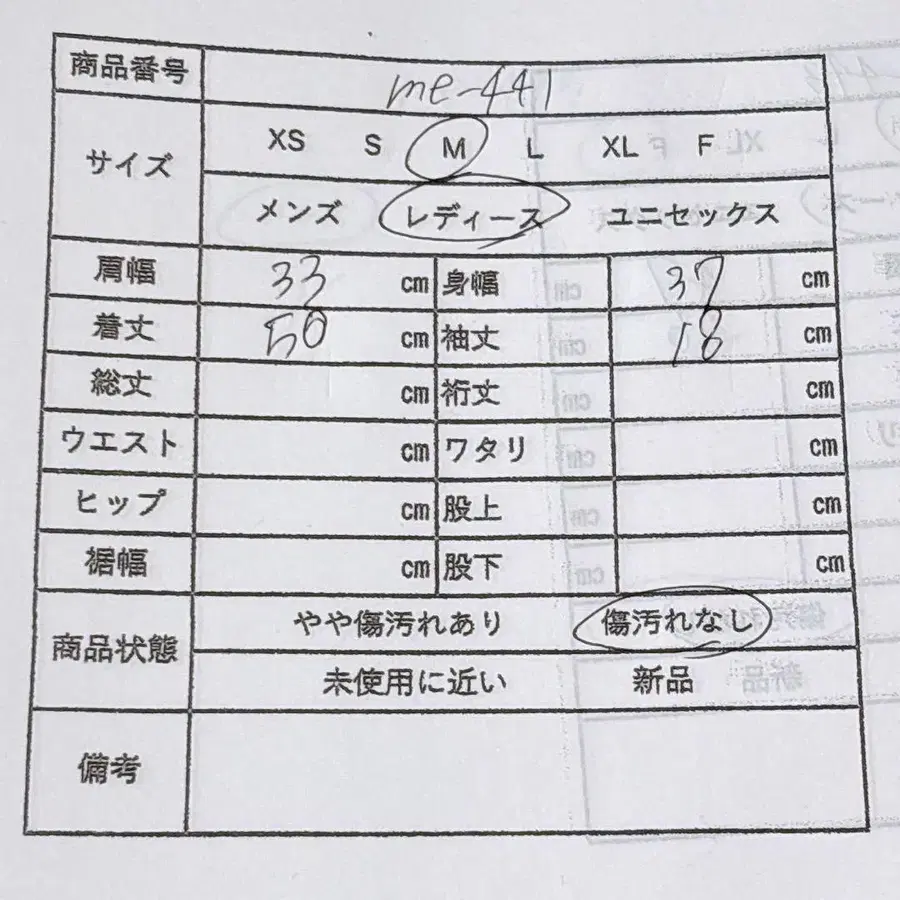 商品番号 me-441
サイズ XS S M L XL F
メンズ レディース ユニセックス
肩幅 33 cm 身幅 37 cm
着丈 50 cm 袖丈 18 cm
総丈 cm 裄丈 cm
ウエスト cm ワタリ cm
ヒップ cm 股上 cm
裾幅 cm 股下 cm
商品状態 やや傷汚れあり 傷汚れなし
未使用に近い 新品
備考